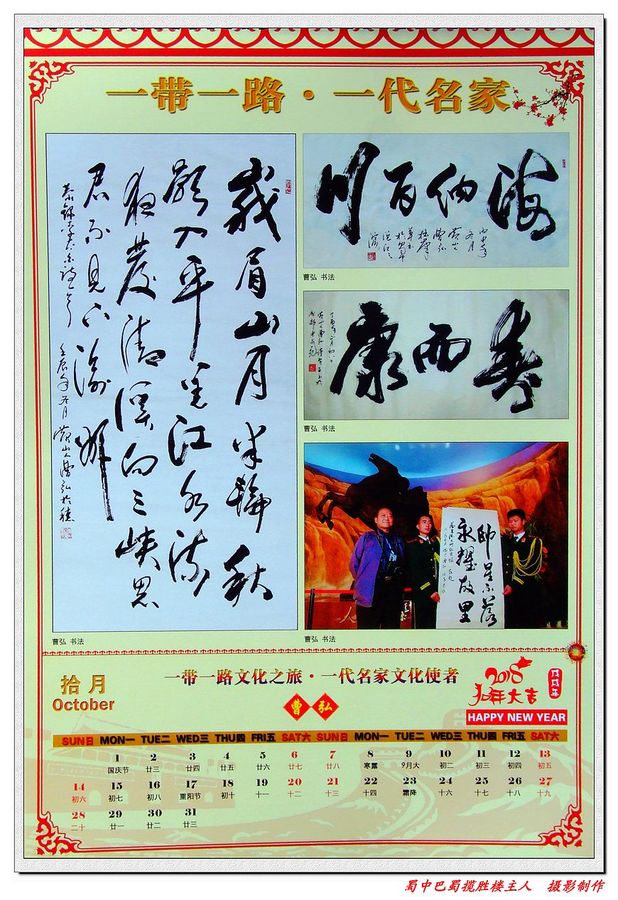 一带一路·一代名家
峩眉山月半輪秋
影入平羌江水流
夜發清溪向三峡思
君不見下渝州
海纳百川
曹弘 书法
寿而康
曹弘 书法
帅星不落
永耀故里
曹弘 书法
曹弘 书法
拾月
October
一带一路文化之旅·一代名家文化使者
曹弘
2018
狗年大吉
戊戌年
HAPPY NEW YEAR
SUN日 MON一 TUE二 WED三 THU四 FRI五 SAT六 SUN日 MON一 TUE二 WED三 THU四 FRI五 SAT六
1 2 3 4 5 6 7 8 9 10 11 12 13
国庆节 廿三 廿四 廿五 廿六 廿七 廿八 寒露 9月大 初二 初三 初四 初五
14 15 16 17 18 19 20 21 22 23 24 25 26 27
初六 初七 初八 重阳节 初十 十一 十二 十三 十四 霜降 十六 十七 十八 十九
28 29 30 31
二十 廿一 廿二 廿三
蜀中巴蜀揽胜楼主人 摄影制作